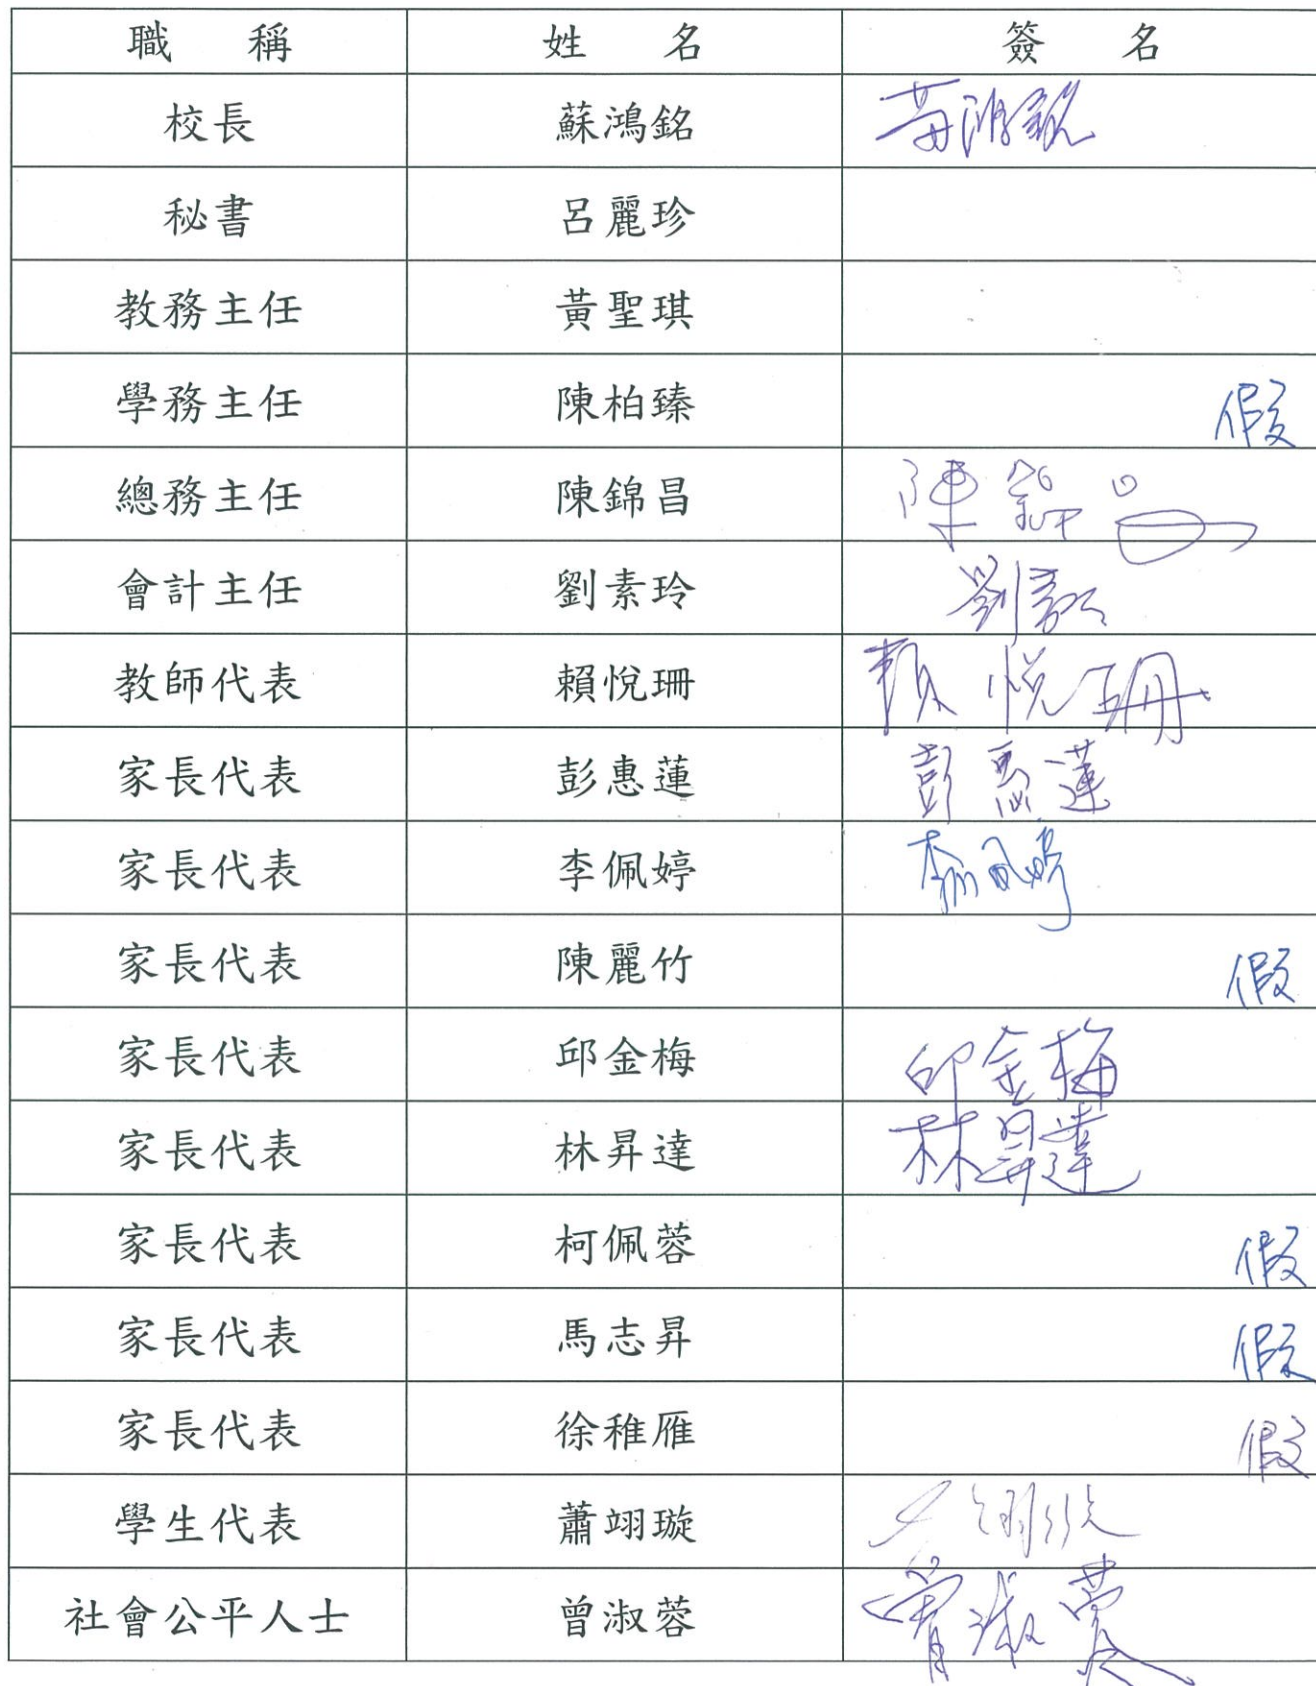 職稱 姓名 簽名
校長 蘇鴻銘 蘇鴻銘
秘書 呂麗珍
教務主任 黃聖琪
學務主任 陳柏臻 假
總務主任 陳錦昌 陳錦昌
會計主任 劉素玲 劉素玲
教師代表 賴悅珊 賴悅珊
家長代表 彭惠蓮 彭惠蓮
家長代表 李佩婷 李佩婷
家長代表 陳麗竹 假
家長代表 邱金梅 邱金梅
家長代表 林昇達 林昇達
家長代表 柯佩蓉 假
家長代表 馬志昇 假
家長代表 徐稚雁 假
學生代表 蕭翊璇
社會公平人士 曾淑蓉 曾淑蓉